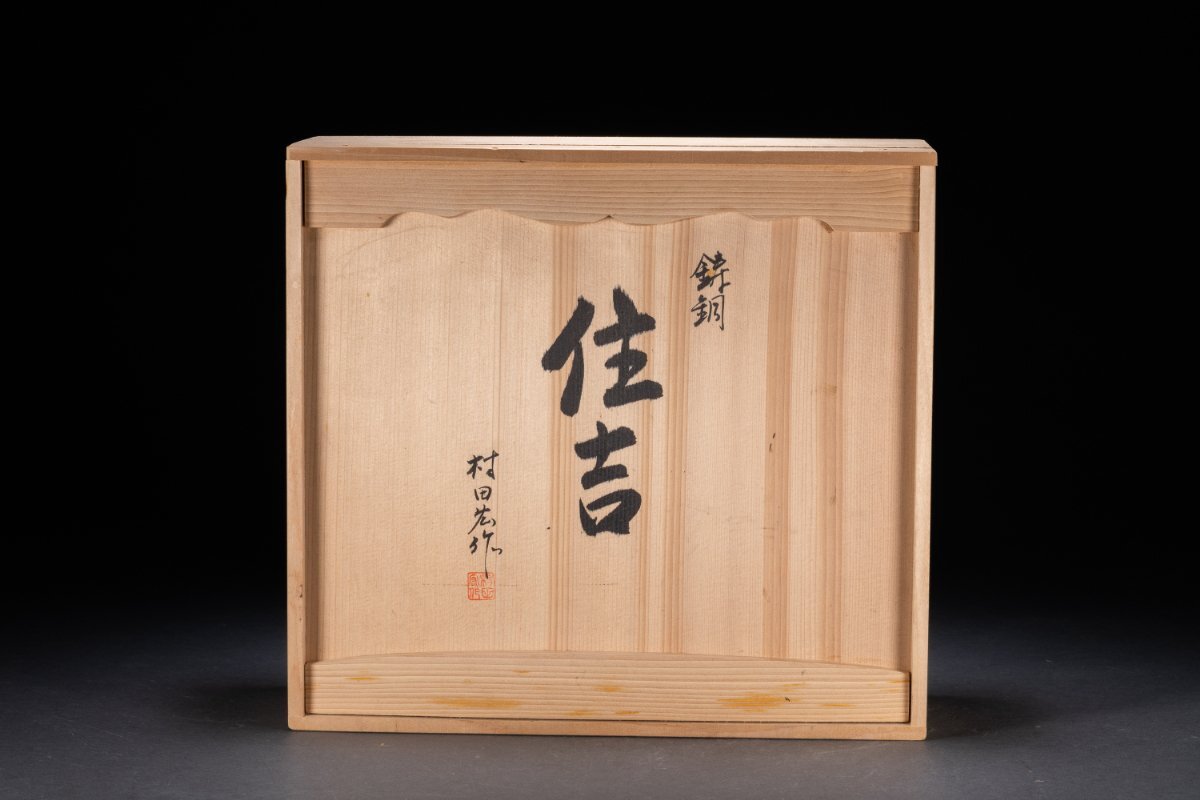 鋳銅
住吉
村田宏作